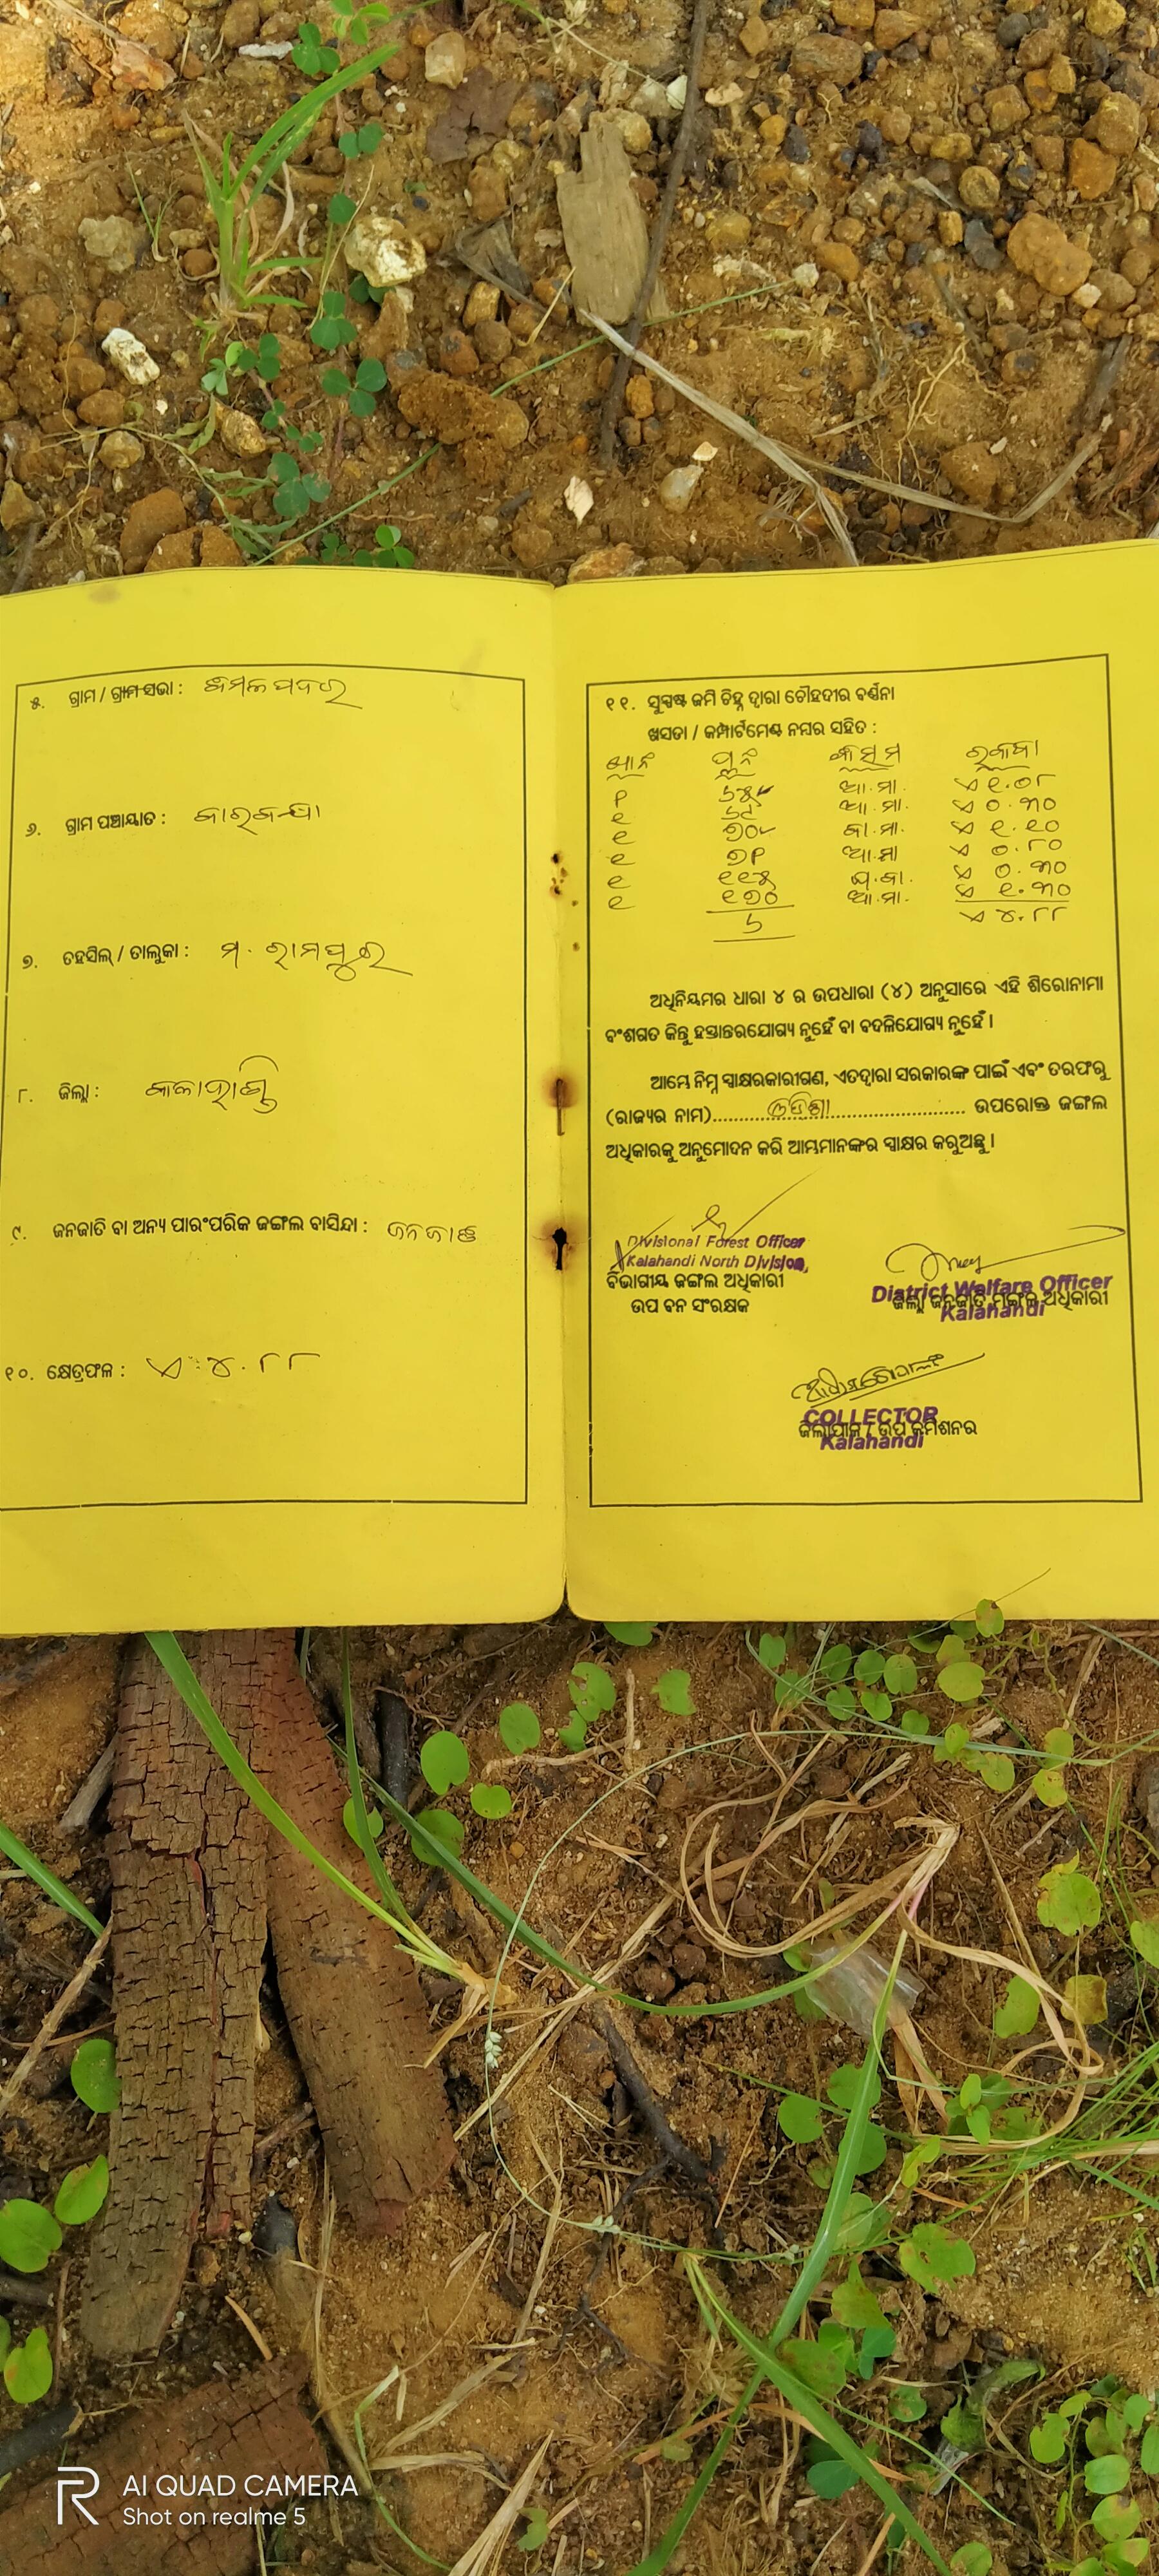 ୫. ଗ୍ରାମ / ଗ୍ରାମସଭା :
୬. ଗ୍ରାମ ପଞ୍ଚାୟାତ :
୭. ତହସିଲ୍ / ତାଲୁକା : ମ. ରାମପୁର
୮. ଜିଲ୍ଲା : କଳାହାଣ୍ଡି
୯. ଜନଜାତି ବା ଅନ୍ୟ ପାରଂପରିକ ଜଙ୍ଗଲ ବାସିନ୍ଦା : ଜନଜାତି
୧୦. କ୍ଷେତ୍ରଫଳ : ଏ ୪.୮୮
୧୧. ସୁସ୍ପଷ୍ଟ ଜମି ଚିହ୍ନ ଦ୍ଵାରା ଚୌହଦୀର ବର୍ଣ୍ଣନା
ଖସଡା / କମ୍ପାର୍ଟମେଣ୍ଟ ନମ୍ବର ସହିତ :
କିସମ ରକବା
ଆ.ମା.
ଆ.ମା. ଏ ୦.୩୦
ଏ ୧.୧୦
ଏ ୦.୮୦
ଏ ୦.୩୦
୧ ୧୭୦ ଆ.ମା. ଏ ୧.୩୦
୬ ଏ ୪.୮୮
ଅଧିନିୟମର ଧାରା ୪ ର ଉପଧାରା (୪) ଅନୁସାରେ ଏହି ଶିରୋନାମା
ବଂଶଗତ କିନ୍ତୁ ହସ୍ତାନ୍ତରଯୋଗ୍ୟ ନୁହେଁ ବା ବଦଳିଯୋଗ୍ୟ ନୁହେଁ ।
ଆମ୍ଭେ ନିମ୍ନ ସ୍ଵାକ୍ଷରକାରୀଗଣ, ଏତଦ୍ଵାରା ସରକାରଙ୍କ ପାଇଁ ଏବଂ ତରଫରୁ
(ରାଜ୍ୟର ନାମ)........ଓଡିଶା........ ଉପରୋକ୍ତ ଜଙ୍ଗଲ
ଅଧିକାରକୁ ଅନୁମୋଦନ କରି ଆମ୍ଭମାନଙ୍କର ସ୍ଵାକ୍ଷର କରୁଅଛୁ ।
Divisional Forest Officer
Kalahandi North Division,
ବିଭାଗୀୟ ଜଙ୍ଗଲ ଅଧିକାରୀ
ଉପ ବନ ସଂରକ୍ଷକ
District Welfare Officer
ଜିଲ୍ଲା ଜନଜାତି ମଙ୍ଗଳ ଅଧିକାରୀ
Kalahandi
COLLECTOR
ଜିଲ୍ଲାପାଳ / ଉପ କମିଶନର
Kalahandi
AI QUAD CAMERA
Shot on realme 5